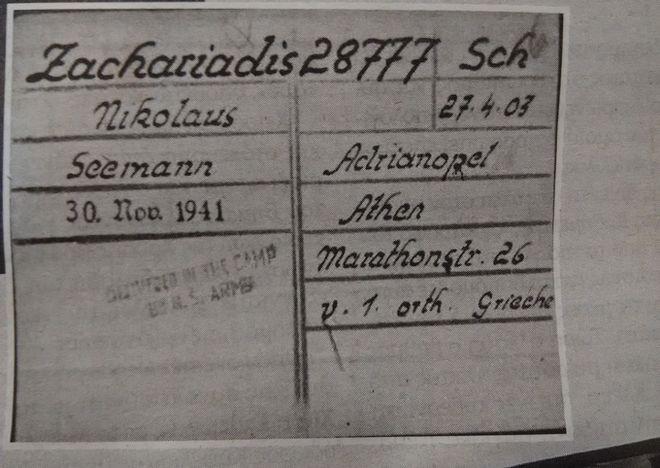 Zachariadis 28777 Sch
Nikolaus 27.4.03
Seemann Adrianopel
30. Nov. 1941 Athen
Marathonstr. 26
v. 1. orth. Grieche
IN THE CAMP
BY U.S. ARMY